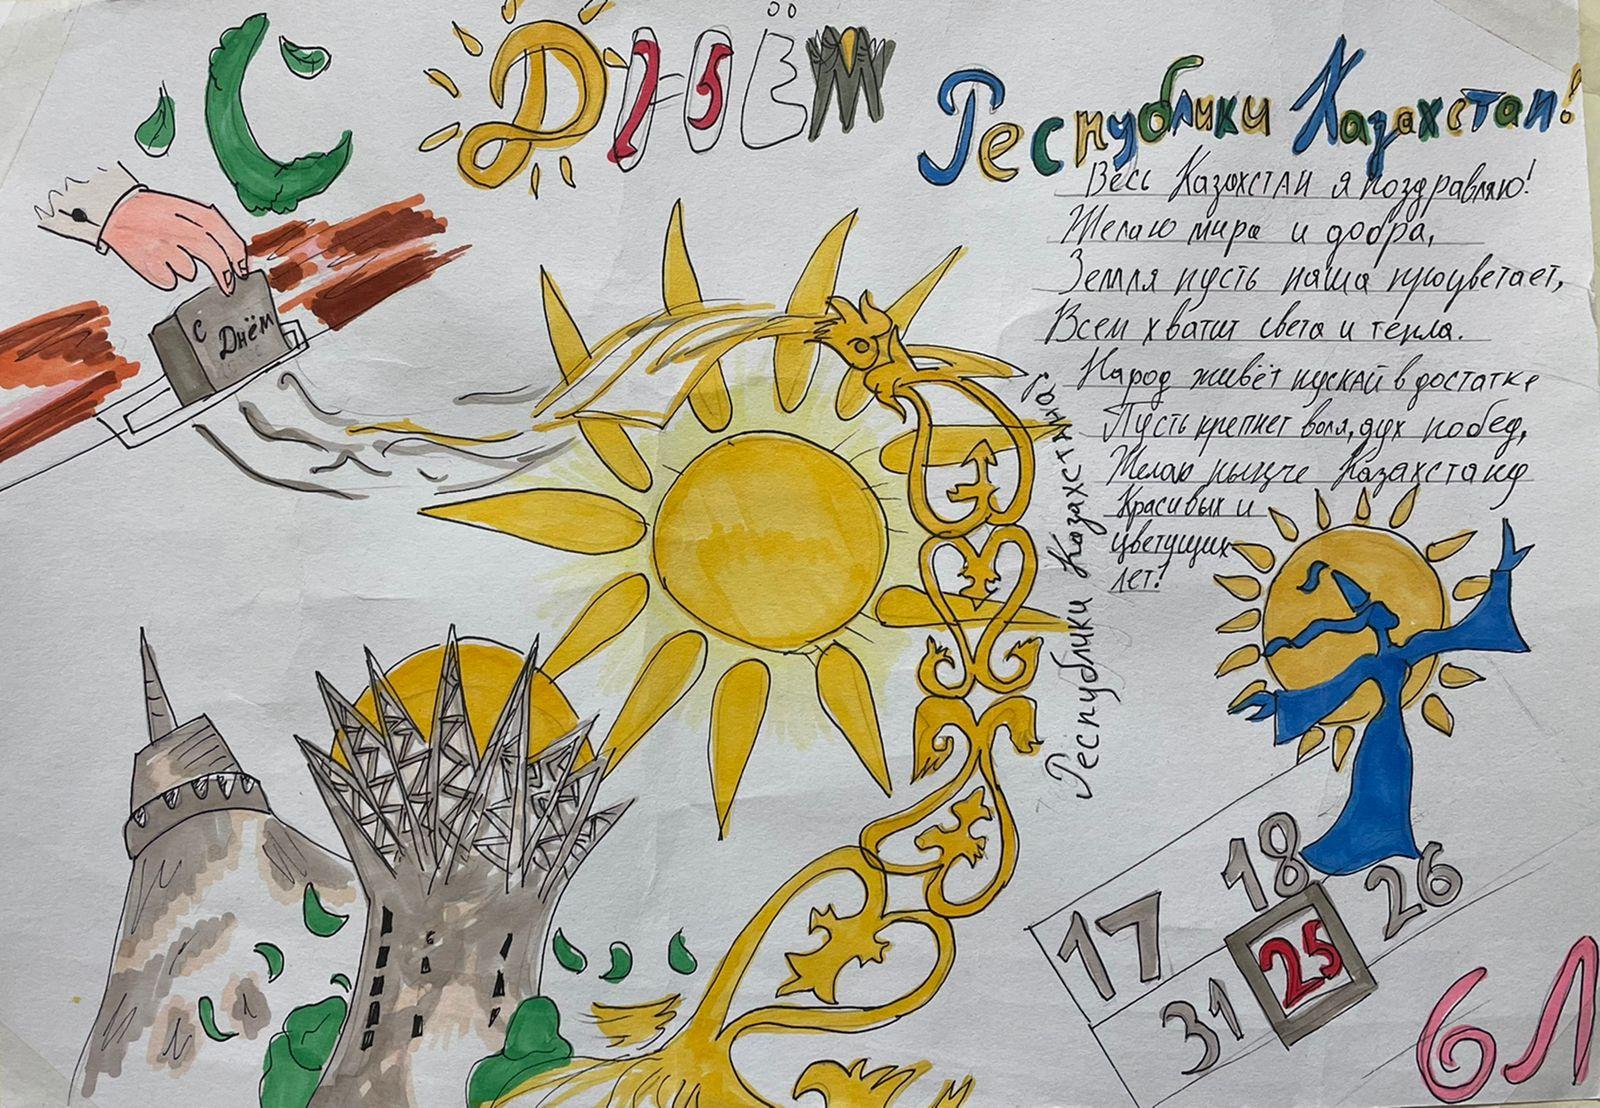 С ДНЁМ Республики Казахстан!
Весь Казахстан я поздравляю!
Желаю мира и добра,
Земля пусть наша процветает,
Всем хватит света и тепла.
Народ живёт пускай в достатке
Пусть крепнет воля, дух побед,
Желаю нынче Казахстану
Красивых и
цветущих
лет!
С Днём
Республики Казахстана!
17 18 26
31 25
6Л